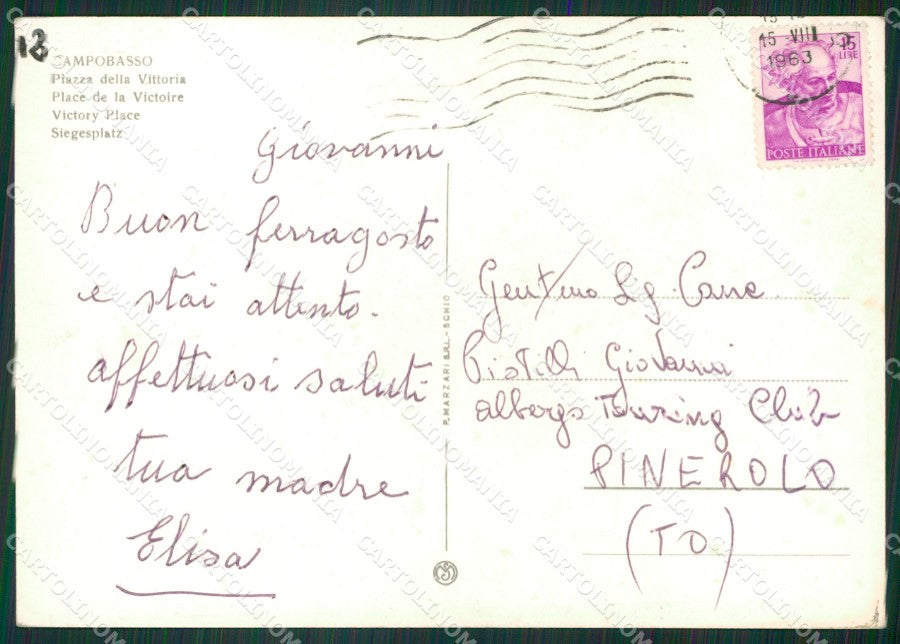 18
CAMPOBASSO
Piazza della Vittoria
Place de la Victoire
Victory Place
Siegesplatz
Giovanni
Buon ferragosto
e stai attento.
affettuosi saluti
tua madre
Elisa
P. MARZARI S.R.L. - SCHIO
15 VIII
1963
15
LIRE
POSTE ITALIANE
Sg. Cane
Pistilli Giovanni
albergo Touring Club
PINEROLO
(TO)
CARTOLINOMANIA